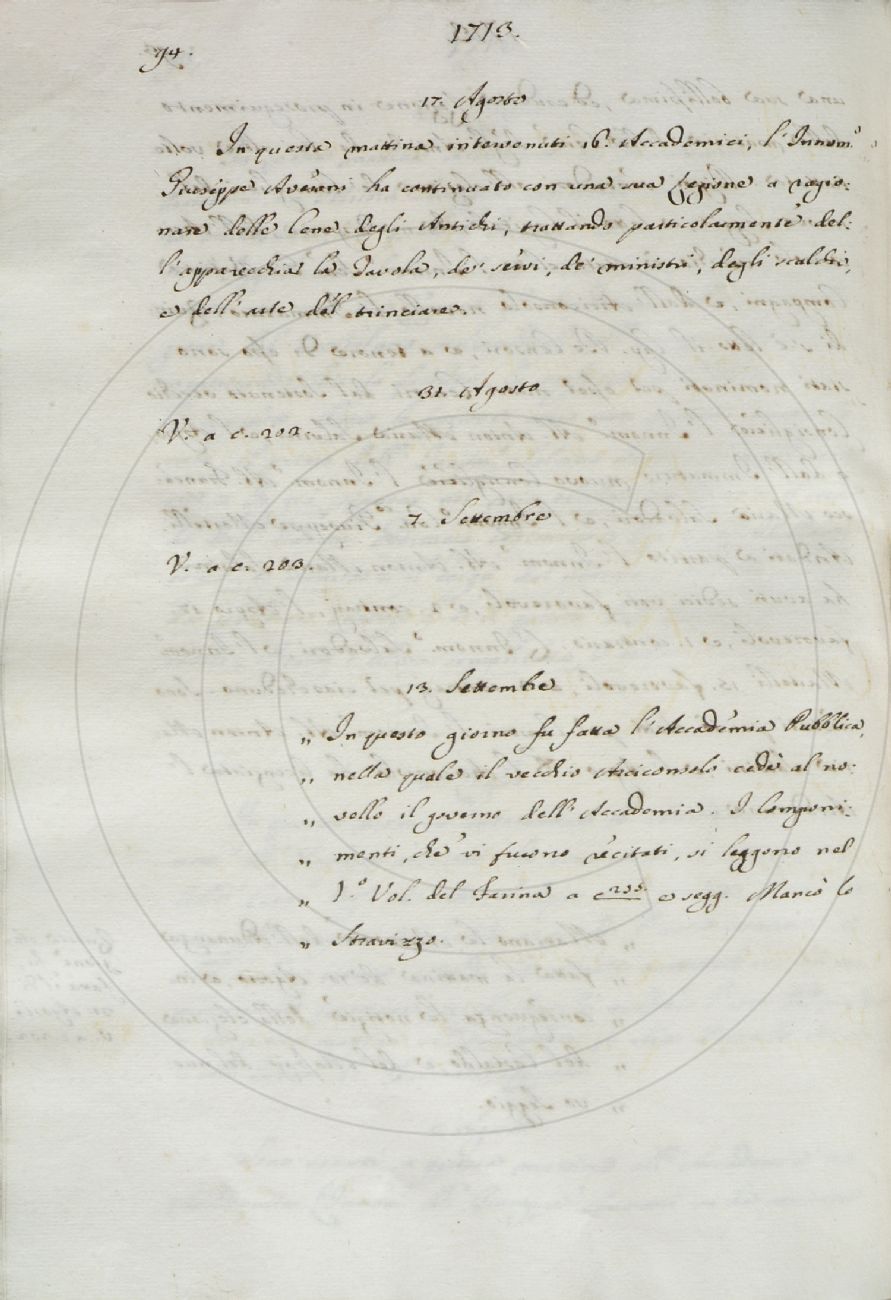 1713.
94.
17. Agosto
In questa mattina intervenuti 16. Accademici, l'Innom.o
Giuseppe Averani ha continuato con una sua Lezione a ragio:
nare delle Cene degli Antichi, trattando particolarmente del:
l'apparecchiar la Tavola, de' servi, de' ministri, degli scalchi,
e dell'arte del trinciare.
31. Agosto
V. a c. 202.
7. Settembre
V. a c. 203.
13. Settembre
„ In questo giorno fu fatta l'Accademia Pubblica,
„ nella quale il vecchio Arciconsolo cedè al no:
„ vello il governo dell'Accademia. I Componi:
„ menti, che vi furono recitati, si leggono nel
„ 1.o Vol. del Farina a c. 255. e segg. Mancò lo
„ Stravizzo.